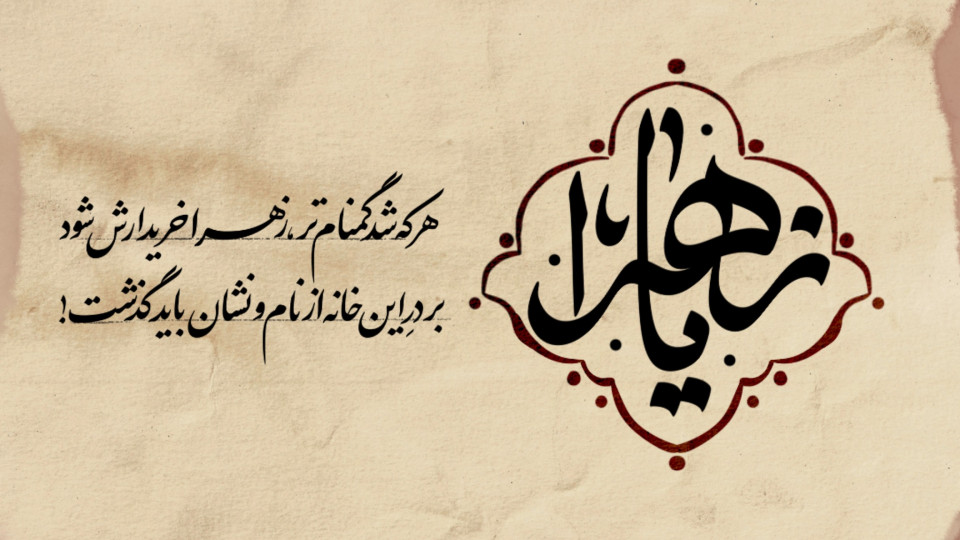 یا زهرا
هر که شد گمنام تر، زهرا خریدارش شود
بر درِ این خانه از نام و نشان باید گذشت!